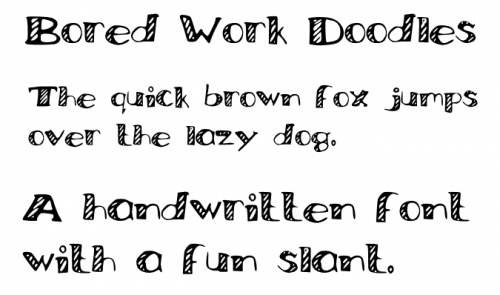 Bored Work Doodles
The quick brown fox jumps
over the lazy dog.
A handwritten font
with a fun slant.